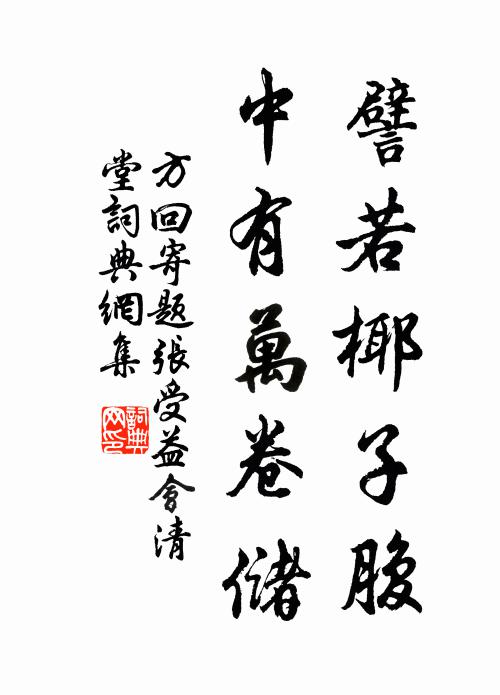 譬若椰子腹
中有萬卷儲
方回寄題張受益會清
堂詞典網集
詞典網印